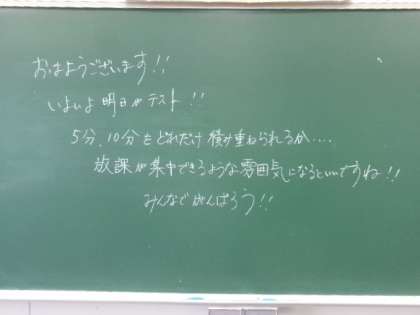 おはようございます!!
いよいよ明日がテスト!!
5分、10分をどれだけ積み重ねられるか....
放課が集中できるような雰囲気になるといいですね!!
みんなでがんばろう!!